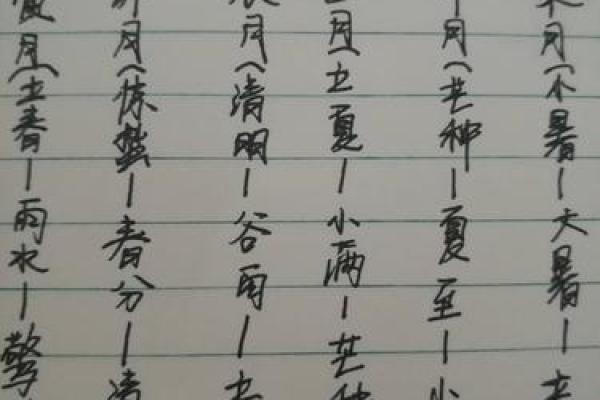 月(立春—雨水—
月(惊蛰—春分—清
月(清明—谷雨—立
月(立夏—小满—芒种
月(芒种—夏至—小
未月(小暑—大暑—立